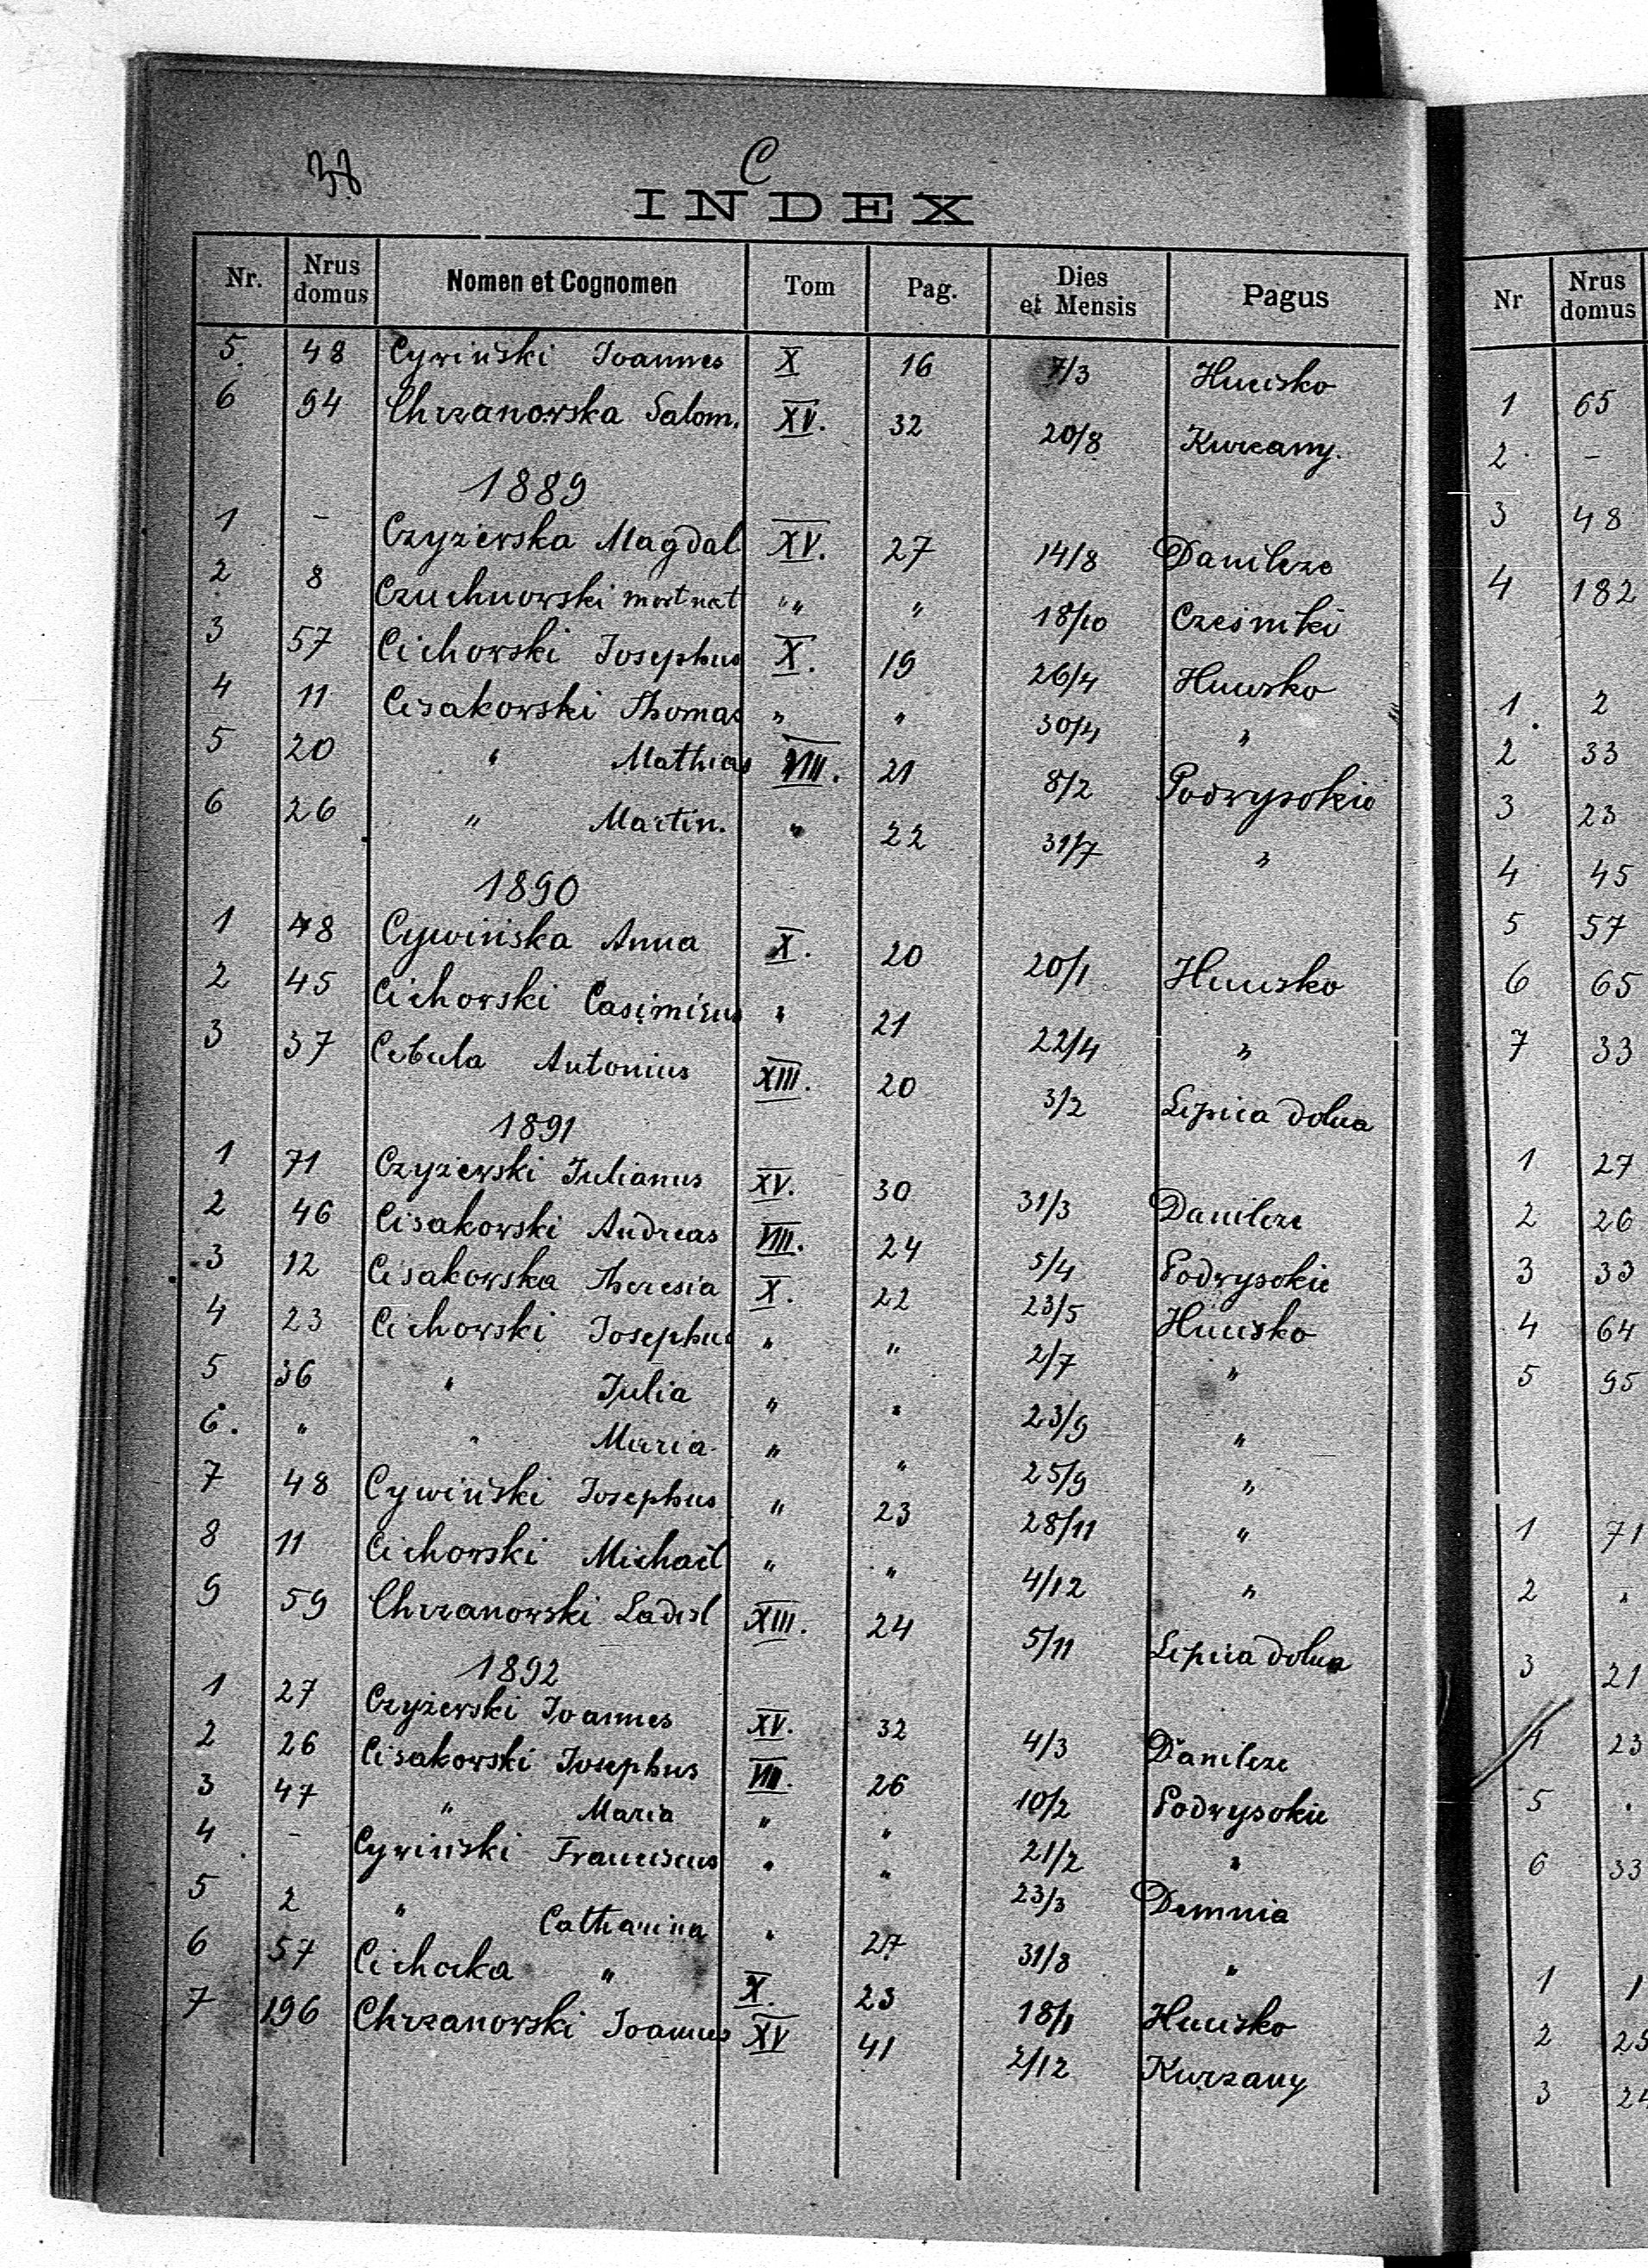 38
C
INDEX
Nr. Nrus domus Nomen et Cognomen Tom Pag. Dies et Mensis Pagus
5. 48 Cywiński Joannes X 16 7/3 Hucisko
6 94 Chrzanowska Salom. XV. 32 20/8 Kurzany.
1889
1 - Czyżewska Magdal XV. 27 14/8 Danilcze
2 8 Czuchnowski mort nat " " " 18/10 Cześniki
3 57 Cichorski Josephus X. 19 26/4 Hucisko
4 11 Cisakowski Thomas " " 30/4 "
5 20 " Mathias VIII. 21 8/2 Podwysokie
6 26 " Martin. " 22 31/7 "
1890
1 48 Cywińska Anna X. 20 20/1 Hucisko
2 45 Cichorski Casimirus " 21 22/4 "
3 37 Cebula Antonius XIII. 20 3/2 Lipica dolna
1891
1 71 Czyżewski Julianus XV. 30 31/3 Danilcze
2 46 Cisakowski Andreas VIII. 24 5/4 Podwysokie
3 12 Cisakowska Theresia X. 22 23/5 Hucisko
4 23 Cichorski Josephus " " 2/7 "
5 36 " Julia " " 23/9 "
6. " " Maria " " 25/9 "
7 48 Cywiński Josephus " 23 28/11 "
8 11 Cichorski Michaël " " 4/12 "
9 59 Chrzanowski Ladisl XIII. 24 5/11 Lipica dolna
1892
1 27 Czyżewski Joannes XV. 32 4/3 Danilcze
2 26 Cisakowski Josephus VIII. 26 10/2 Podwysokie
3 47 " Maria " " 21/2 "
4 - Cywiński Franciscus " " 23/3 Demnia
5 2 " Catharina " 27 31/8 "
6 57 Cichocka " X. 23 18/1 Hucisko
7 196 Chrzanowski Joannes XV 41 2/12 Kurzany
Nr Nrus domus
1 65
2 -
3 48
4 182
1 2
2 33
3 23
4 45
5 57
6 65
7 33
1 27
2 26
3 33
4 64
5 95
1 71
2 "
3 21
4 23
5 "
6 33
1 1
2
3